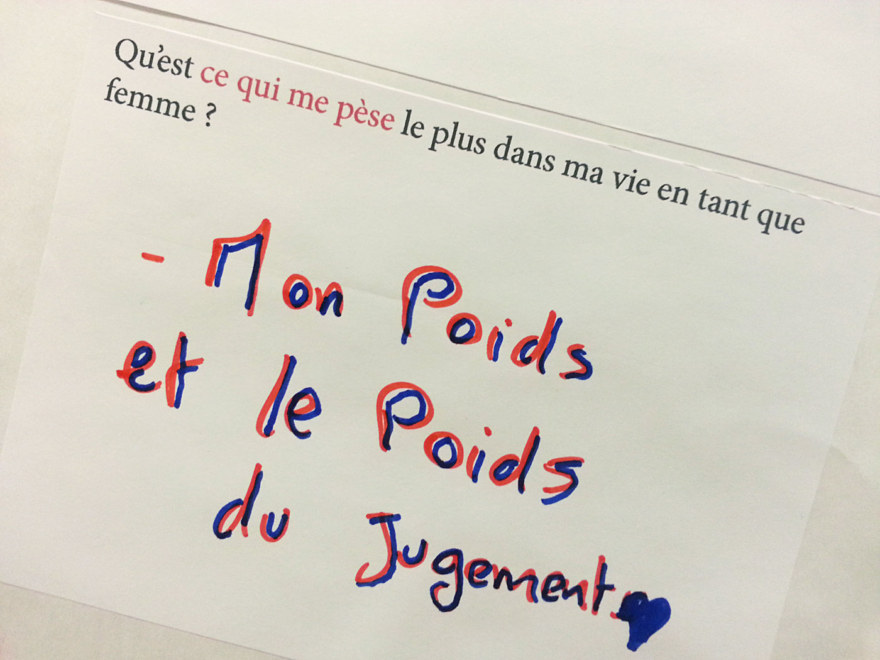 Qu'est ce qui me pèse le plus dans ma vie en tant que
femme ?
- Mon Poids
et le Poids
du Jugement